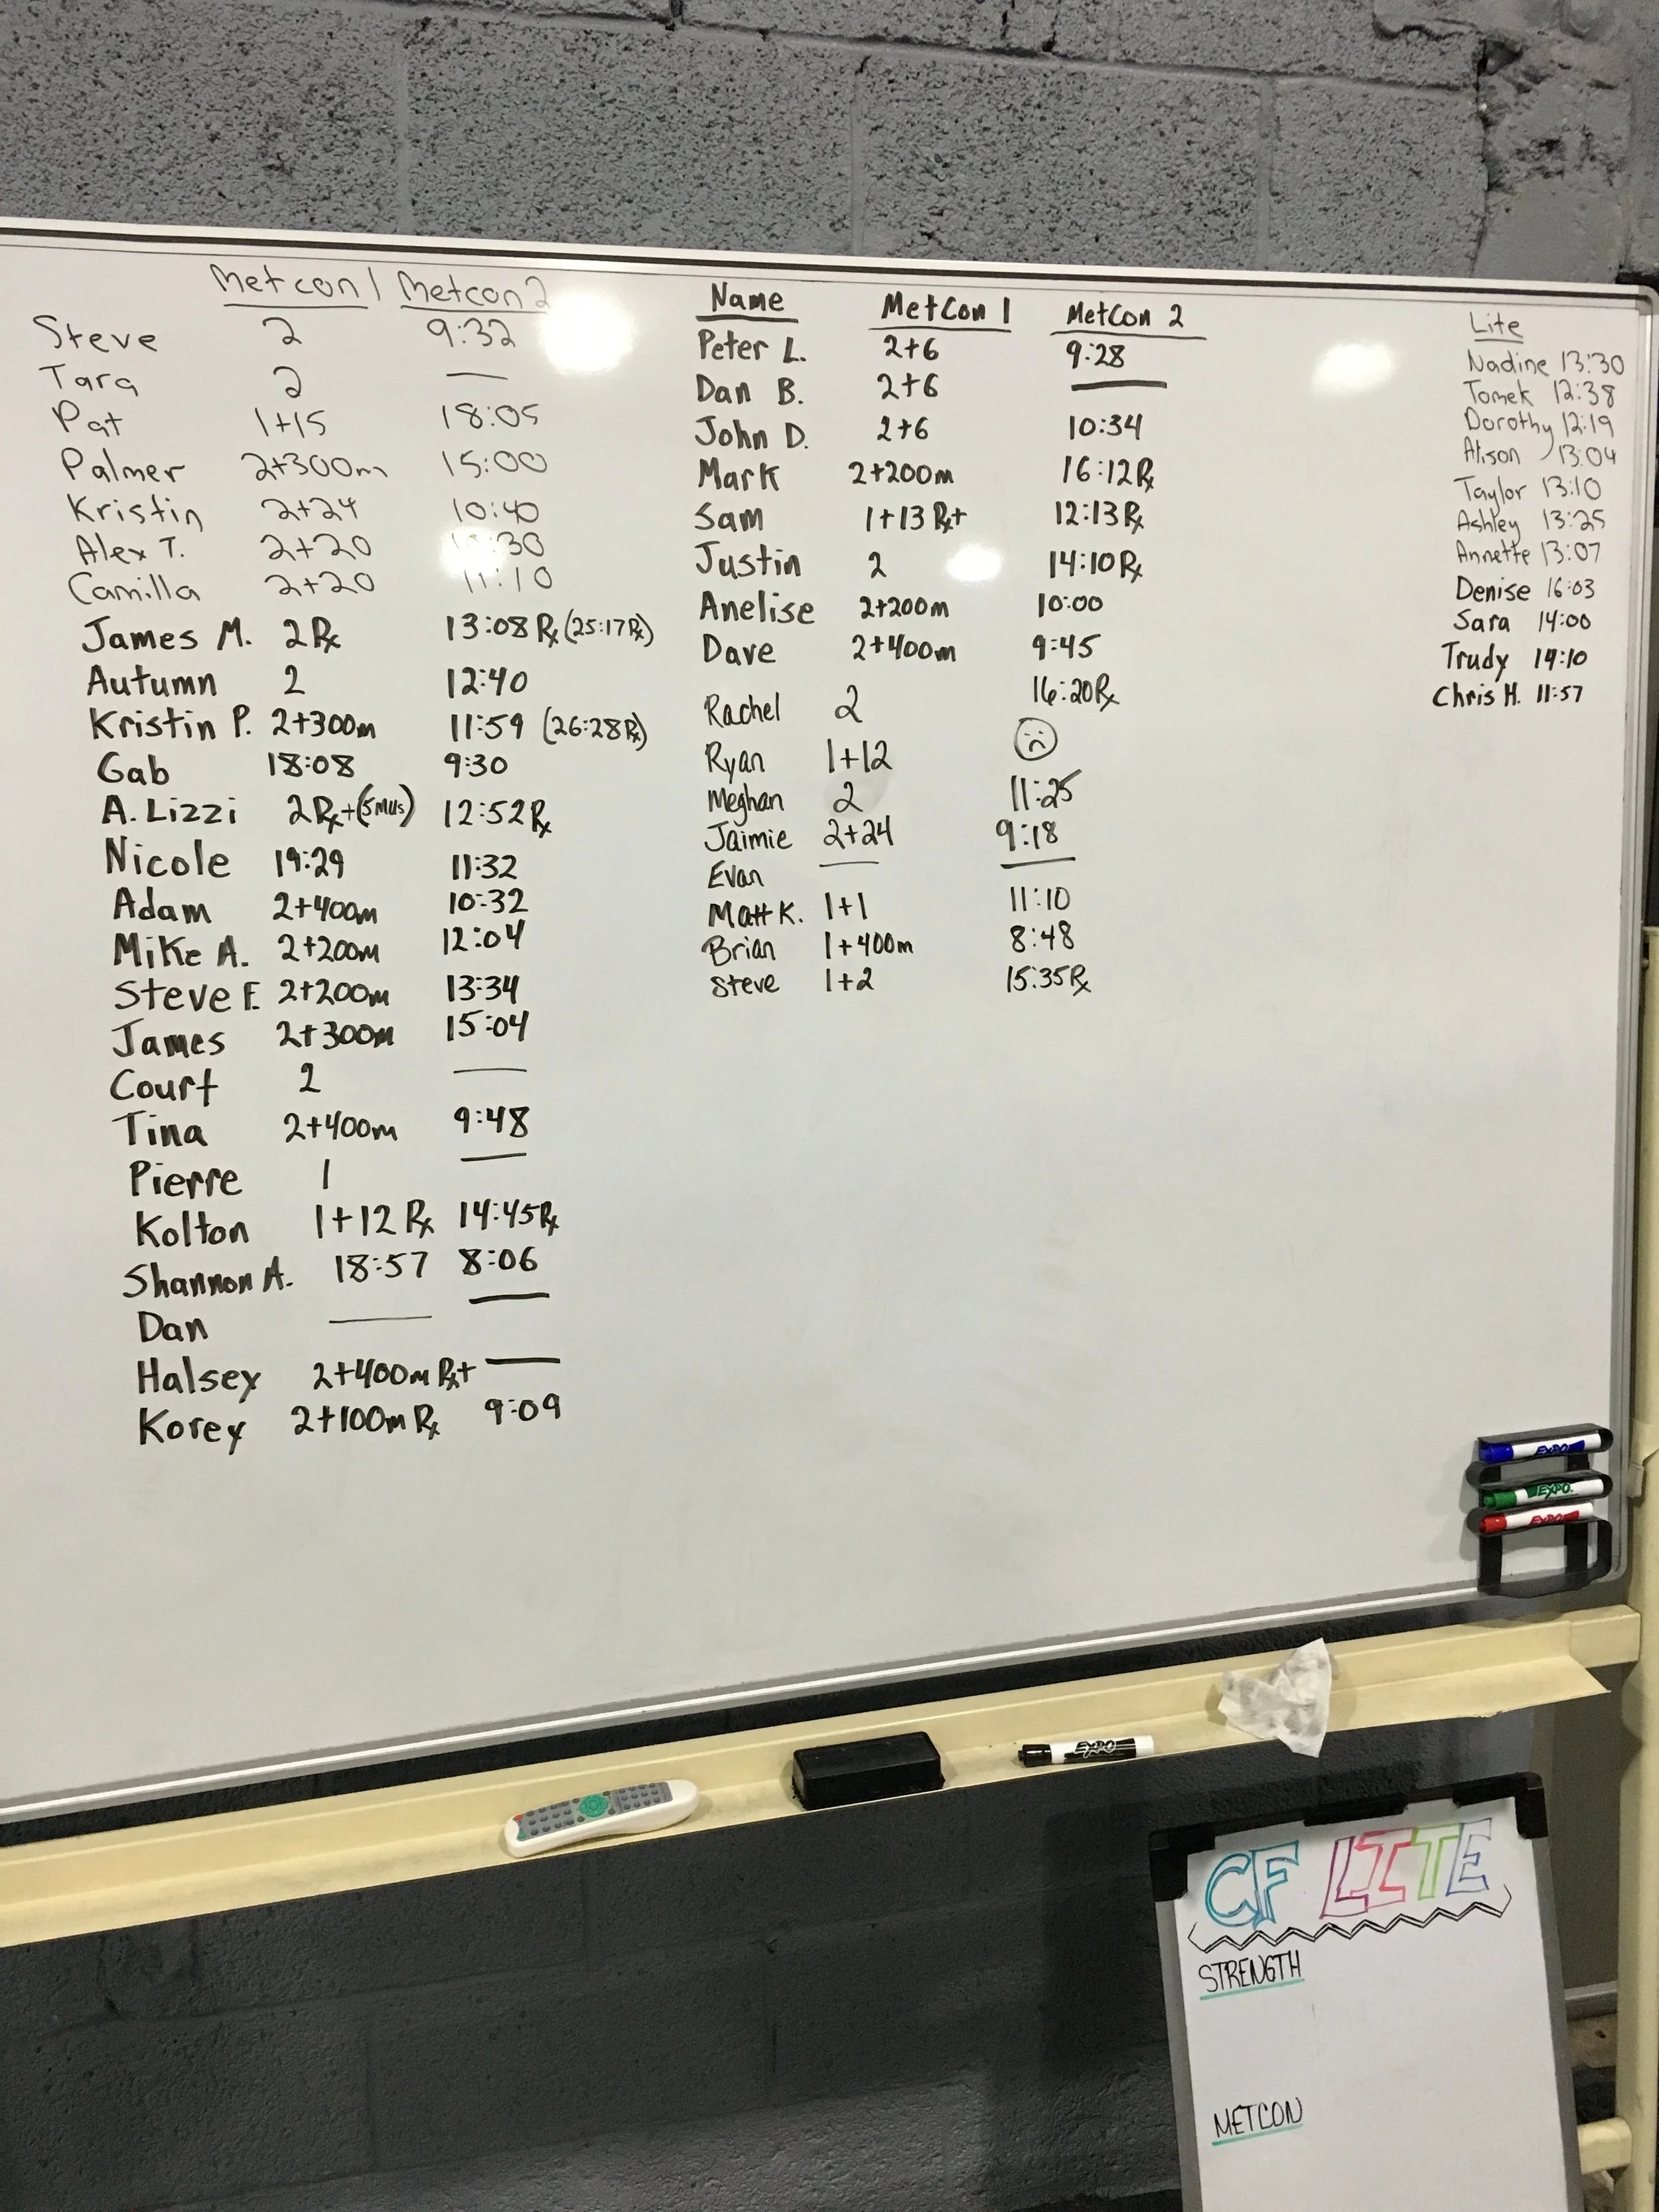 Metcon 1 Metcon 2
Steve 2 9:32
Tara 2 —
Pat 1+15 18:05
Palmer 2+300m 15:00
Kristin 2+24 10:40
Alex T. 2+20 :30
Camilla 2+20 11:10
James M. 2 Rx 13:08 Rx (25:17 Rx)
Autumn 2 12:40
Kristin P. 2+300m 11:59 (26:28 Rx)
Gab 18:08 9:30
A. Lizzi 2 Rx+(5 MUs) 12:52 Rx
Nicole 19:29 11:32
Adam 2+400m 10:32
Mike A. 2+200m 12:04
Steve F. 2+200m 13:34
James 2+300m 15:04
Court 2 —
Tina 2+400m 9:48
Pierre 1 —
Kolton 1+12 Rx 14:45 Rx
Shannon A. 18:57 8:06
Dan — —
Halsey 2+400m Rx+ —
Korey 2+100m Rx 9:09
Name MetCon 1 MetCon 2
Peter L. 2+6 9:28
Dan B. 2+6 —
John D. 2+6 10:34
Mark 2+200m 16:12 Rx
Sam 1+13 Rx+ 12:13 Rx
Justin 2 14:10 Rx
Anelise 2+200m 10:00
Dave 2+400m 9:45
Rachel 2 16:20 Rx
Ryan 1+12 ☹
Meghan 2 11:25
Jaimie 2+24 9:18
Evan — —
Matt K. 1+1 11:10
Brian 1+400m 8:48
Steve 1+2 15:35 Rx
Lite
Nadine 13:30
Tomek 12:38
Dorothy 12:19
Alison 13:04
Taylor 13:10
Ashley 13:25
Annette 13:07
Denise 16:03
Sara 14:00
Trudy 14:10
Chris H. 11:57
EXPO
EXPO.
EXPO
EXPO
CF LITE
STRENGTH
METCON